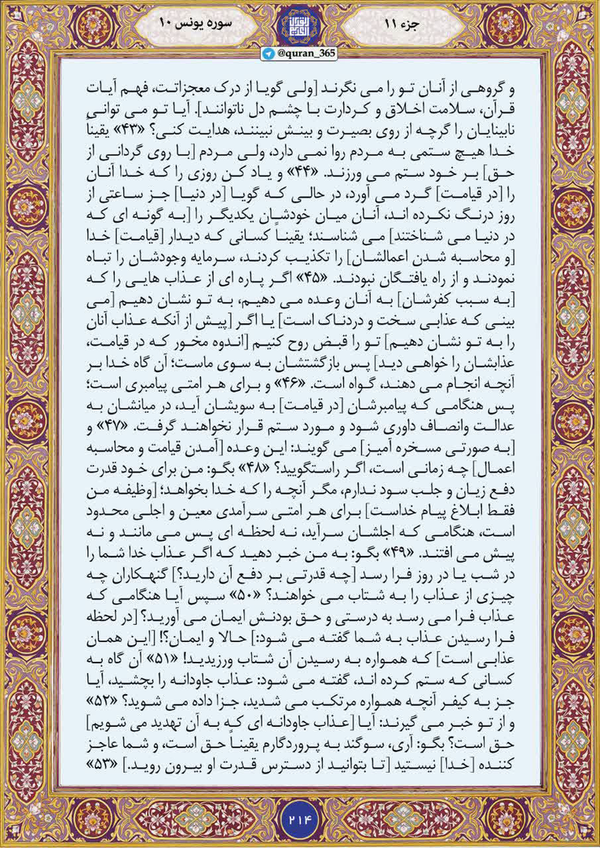 جزء ۱۱
سوره یونس ۱۰
@quran_365
و گروهی از آنان تو را می نگرند [ولی گویا از درک معجزاتت، فهم آیات
قرآن، سلامت اخلاق و کردارت با چشم دل ناتوانند]. آیا تو می توانی
نابینایان را گرچه از روی بصیرت و بینش نبینند، هدایت کنی؟ «۴۳» یقیناً
خدا هیچ ستمی به مردم روا نمی دارد، ولی مردم [با روی گردانی از
حق] بر خود ستم می ورزند. «۴۴» و یاد کن روزی را که خدا آنان
را [در قیامت] گرد می آورد، در حالی که گویا [در دنیا] جز ساعتی از
روز درنگ نکرده اند، آنان میان خودشان یکدیگر را [به گونه ای که
در دنیا می شناختند] می شناسند؛ یقیناً کسانی که دیدار [قیامت] خدا
[و محاسبه شدن اعمالشان] را تکذیب کردند، سرمایه وجودشان را تباه
نمودند و از راه یافتگان نبودند. «۴۵» اگر پاره ای از عذاب هایی را که
[به سبب کفرشان] به آنان وعده می دهیم، به تو نشان دهیم [می
بینی که عذابی سخت و دردناک است] یا اگر [پیش از آنکه عذاب آنان
را به تو نشان دهیم] تو را قبض روح کنیم [اندوه مخور که در قیامت،
عذابشان را خواهی دید] پس بازگشتشان به سوی ماست؛ آن گاه خدا بر
آنچه انجام می دهند، گواه است. «۴۶» و برای هر امتی پیامبری است؛
پس هنگامی که پیامبرشان [در قیامت] به سویشان آید، در میانشان به
عدالت وانصاف داوری شود و مورد ستم قرار نخواهند گرفت. «۴۷» و
[به صورتی مسخره آمیز] می گویند: این وعده [آمدن قیامت و محاسبه
اعمال] چه زمانی است، اگر راستگویید؟ «۴۸» بگو: من برای خود قدرت
دفع زیان و جلب سود ندارم، مگر آنچه را که خدا بخواهد؛ [وظیفه من
فقط ابلاغ پیام خداست] برای هر امتی سرآمدی معین و اجلی محدود
است، هنگامی که اجلشان سرآید، نه لحظه ای پس می مانند و نه
پیش می افتند. «۴۹» بگو: به من خبر دهید که اگر عذاب خدا شما را
در شب یا در روز فرا رسد [چه قدرتی بر دفع آن دارید؟] گنهکاران چه
چیزی از عذاب را به شتاب می خواهند؟ «۵۰» سپس آیا هنگامی که
عذاب فرا می رسد به درستی و حق بودنش ایمان می آورید؟ [در لحظه
فرا رسیدن عذاب به شما گفته می شود:] حالا و ایمان؟! [این همان
عذابی است] که همواره به رسیدن آن شتاب ورزیدید! «۵۱» آن گاه به
کسانی که ستم کرده اند، گفته می شود: عذاب جاودانه را بچشید، آیا
جز به کیفر آنچه همواره مرتکب می شدید، جزا داده می شوید؟ «۵۲»
و از تو خبر می گیرند: آیا [عذاب جاودانه ای که به آن تهدید می شویم]
حق است؟ بگو: آری، سوگند به پروردگارم یقیناً حق است، و شما عاجز
کننده [خدا] نیستید [تا بتوانید از دسترس قدرت او بیرون روید.] «۵۳»
۲۱۴